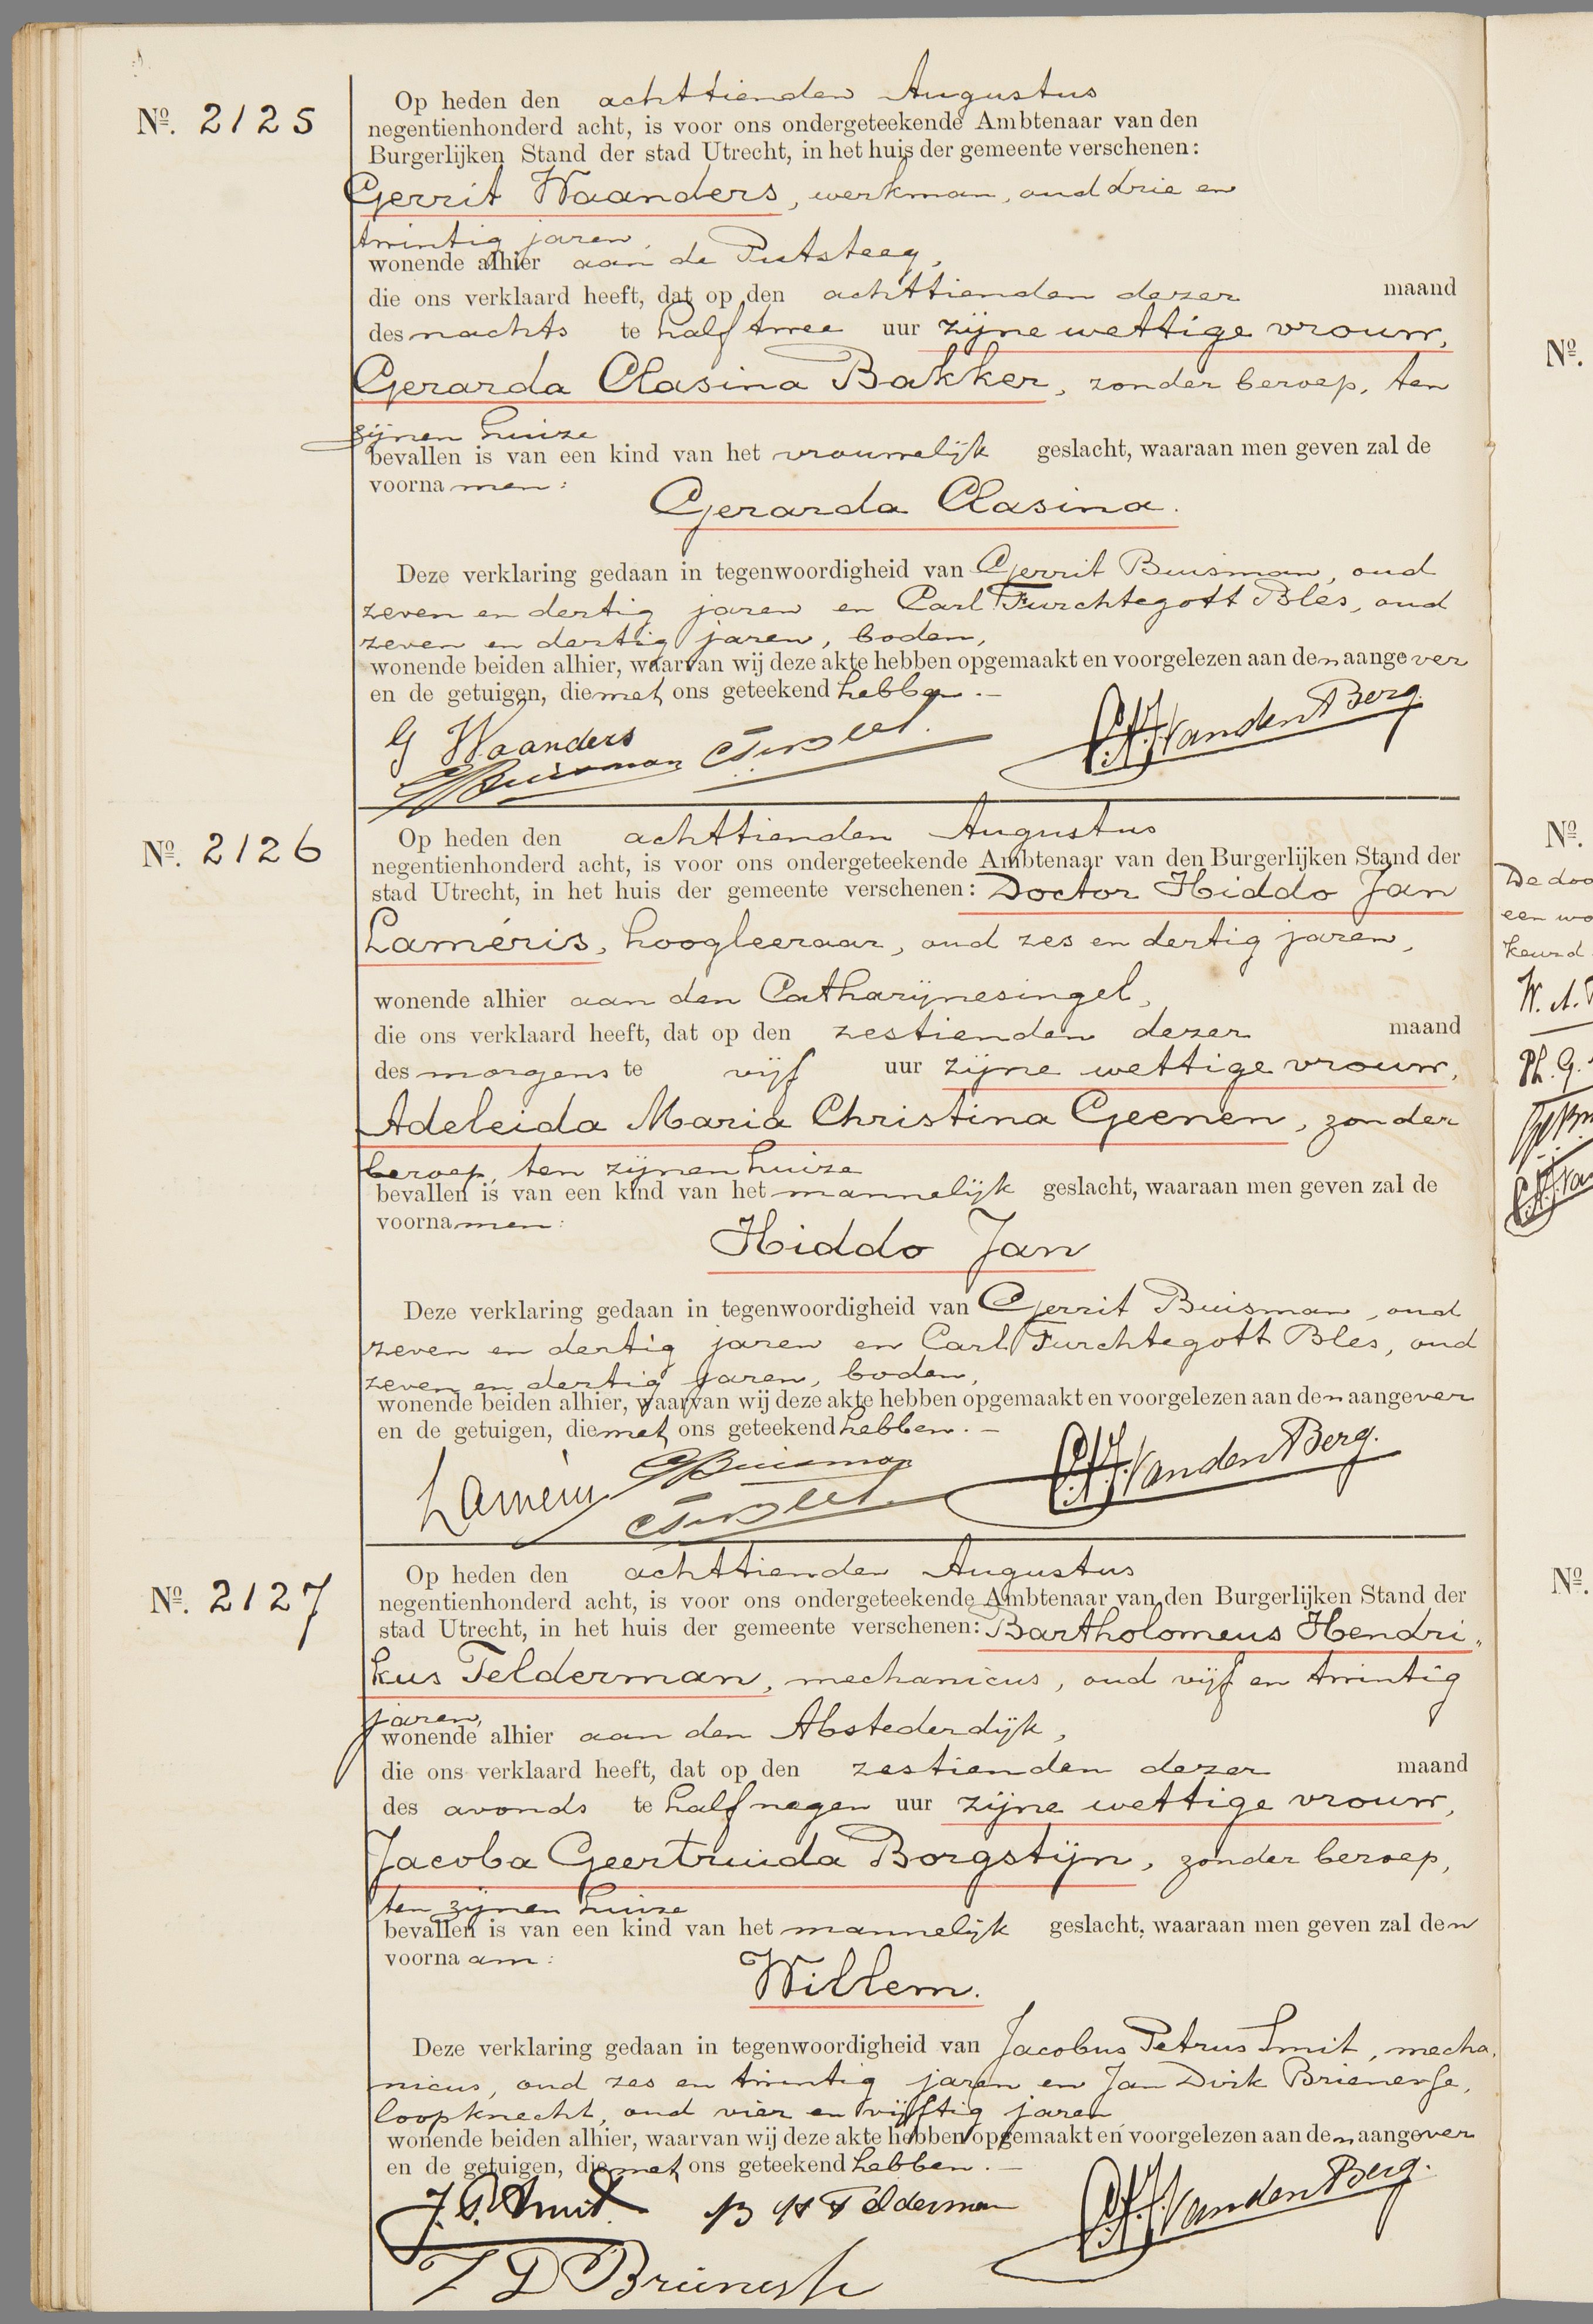 Nº. 2125
Op heden den achttienden Augustus
negentienhonderd acht, is voor ons ondergeteekende Ambtenaar van den
Burgerlijken Stand der stad Utrecht, in het huis der gemeente verschenen:
Gerrit Waanders, werkman, oud drie en
twintig jaren,
wonende alhier aan de Putsteeg,
die ons verklaard heeft, dat op den achttienden dezer maand
des nachts te half twee uur zijne wettige vrouw,
Gerarda Clasina Bakker, zonder beroep, ten
zijnen huize
bevallen is van een kind van het vrouwelijk geslacht, waaraan men geven zal de
voornamen:
Gerarda Clasina.
Deze verklaring gedaan in tegenwoordigheid van Gerrit Buisman, oud
zeven en dertig jaren en Carl Furchtegott Bles, oud
zeven en dertig jaren, boden,
wonende beiden alhier, waarvan wij deze akte hebben opgemaakt en voorgelezen aan den aangever
en de getuigen, die met ons geteekend hebben.—
G Waanders
GBuisman CFurBles. C.A.J. van den Berg.
Nº. 2126
Op heden den achttienden Augustus
negentienhonderd acht, is voor ons ondergeteekende Ambtenaar van den Burgerlijken Stand der
stad Utrecht, in het huis der gemeente verschenen: Doctor Hiddo Jan
Laméris, hoogleeraar, oud zes en dertig jaren,
wonende alhier aan den Catharijnesingel,
die ons verklaard heeft, dat op den zestienden dezer maand
des morgens te vijf uur zijne wettige vrouw,
Adeleida Maria Christina Geenen, zonder
beroep, ten zijnen huize
bevallen is van een kind van het mannelijk geslacht, waaraan men geven zal de
voornamen:
Hiddo Jan
Deze verklaring gedaan in tegenwoordigheid van Gerrit Buisman, oud
zeven en dertig jaren en Carl Furchtegott Bles, oud
zeven en dertig jaren, boden,
wonende beiden alhier, waarvan wij deze akte hebben opgemaakt en voorgelezen aan den aangever
en de getuigen, die met ons geteekend hebben.—
Laméris GBuisman van den Berg.
Nº. 2127
Op heden den achttienden Augustus
negentienhonderd acht, is voor ons ondergeteekende Ambtenaar van den Burgerlijken Stand der
stad Utrecht, in het huis der gemeente verschenen: Bartholomeus Hendri„
kus Telderman, mechanicus, oud vijf en twintig
jaren,
wonende alhier aan den Abstederdijk,
die ons verklaard heeft, dat op den zestienden dezer maand
des avonds te half negen uur zijne wettige vrouw,
Jacoba Geertruida Borgstijn, zonder beroep,
ten zijnen huize
bevallen is van een kind van het mannelijk geslacht, waaraan men geven zal den
voornaam:
Willem.
Deze verklaring gedaan in tegenwoordigheid van Jacobus Petrus Smit, mecha„
nicus, oud zes en twintig jaren en Jan Dirk Brienesse,
loopknecht, oud vier en vijftig jaren
wonende beiden alhier, waarvan wij deze akte hebben opgemaakt en voorgelezen aan den aangever
en de getuigen, die met ons geteekend hebben.—
J. P. Smit. B H Telderman van den Berg.
J D Brienesse
Nº.
Nº.
De doo
een wo
keurd
W. A.
Ph. G.
Nº.